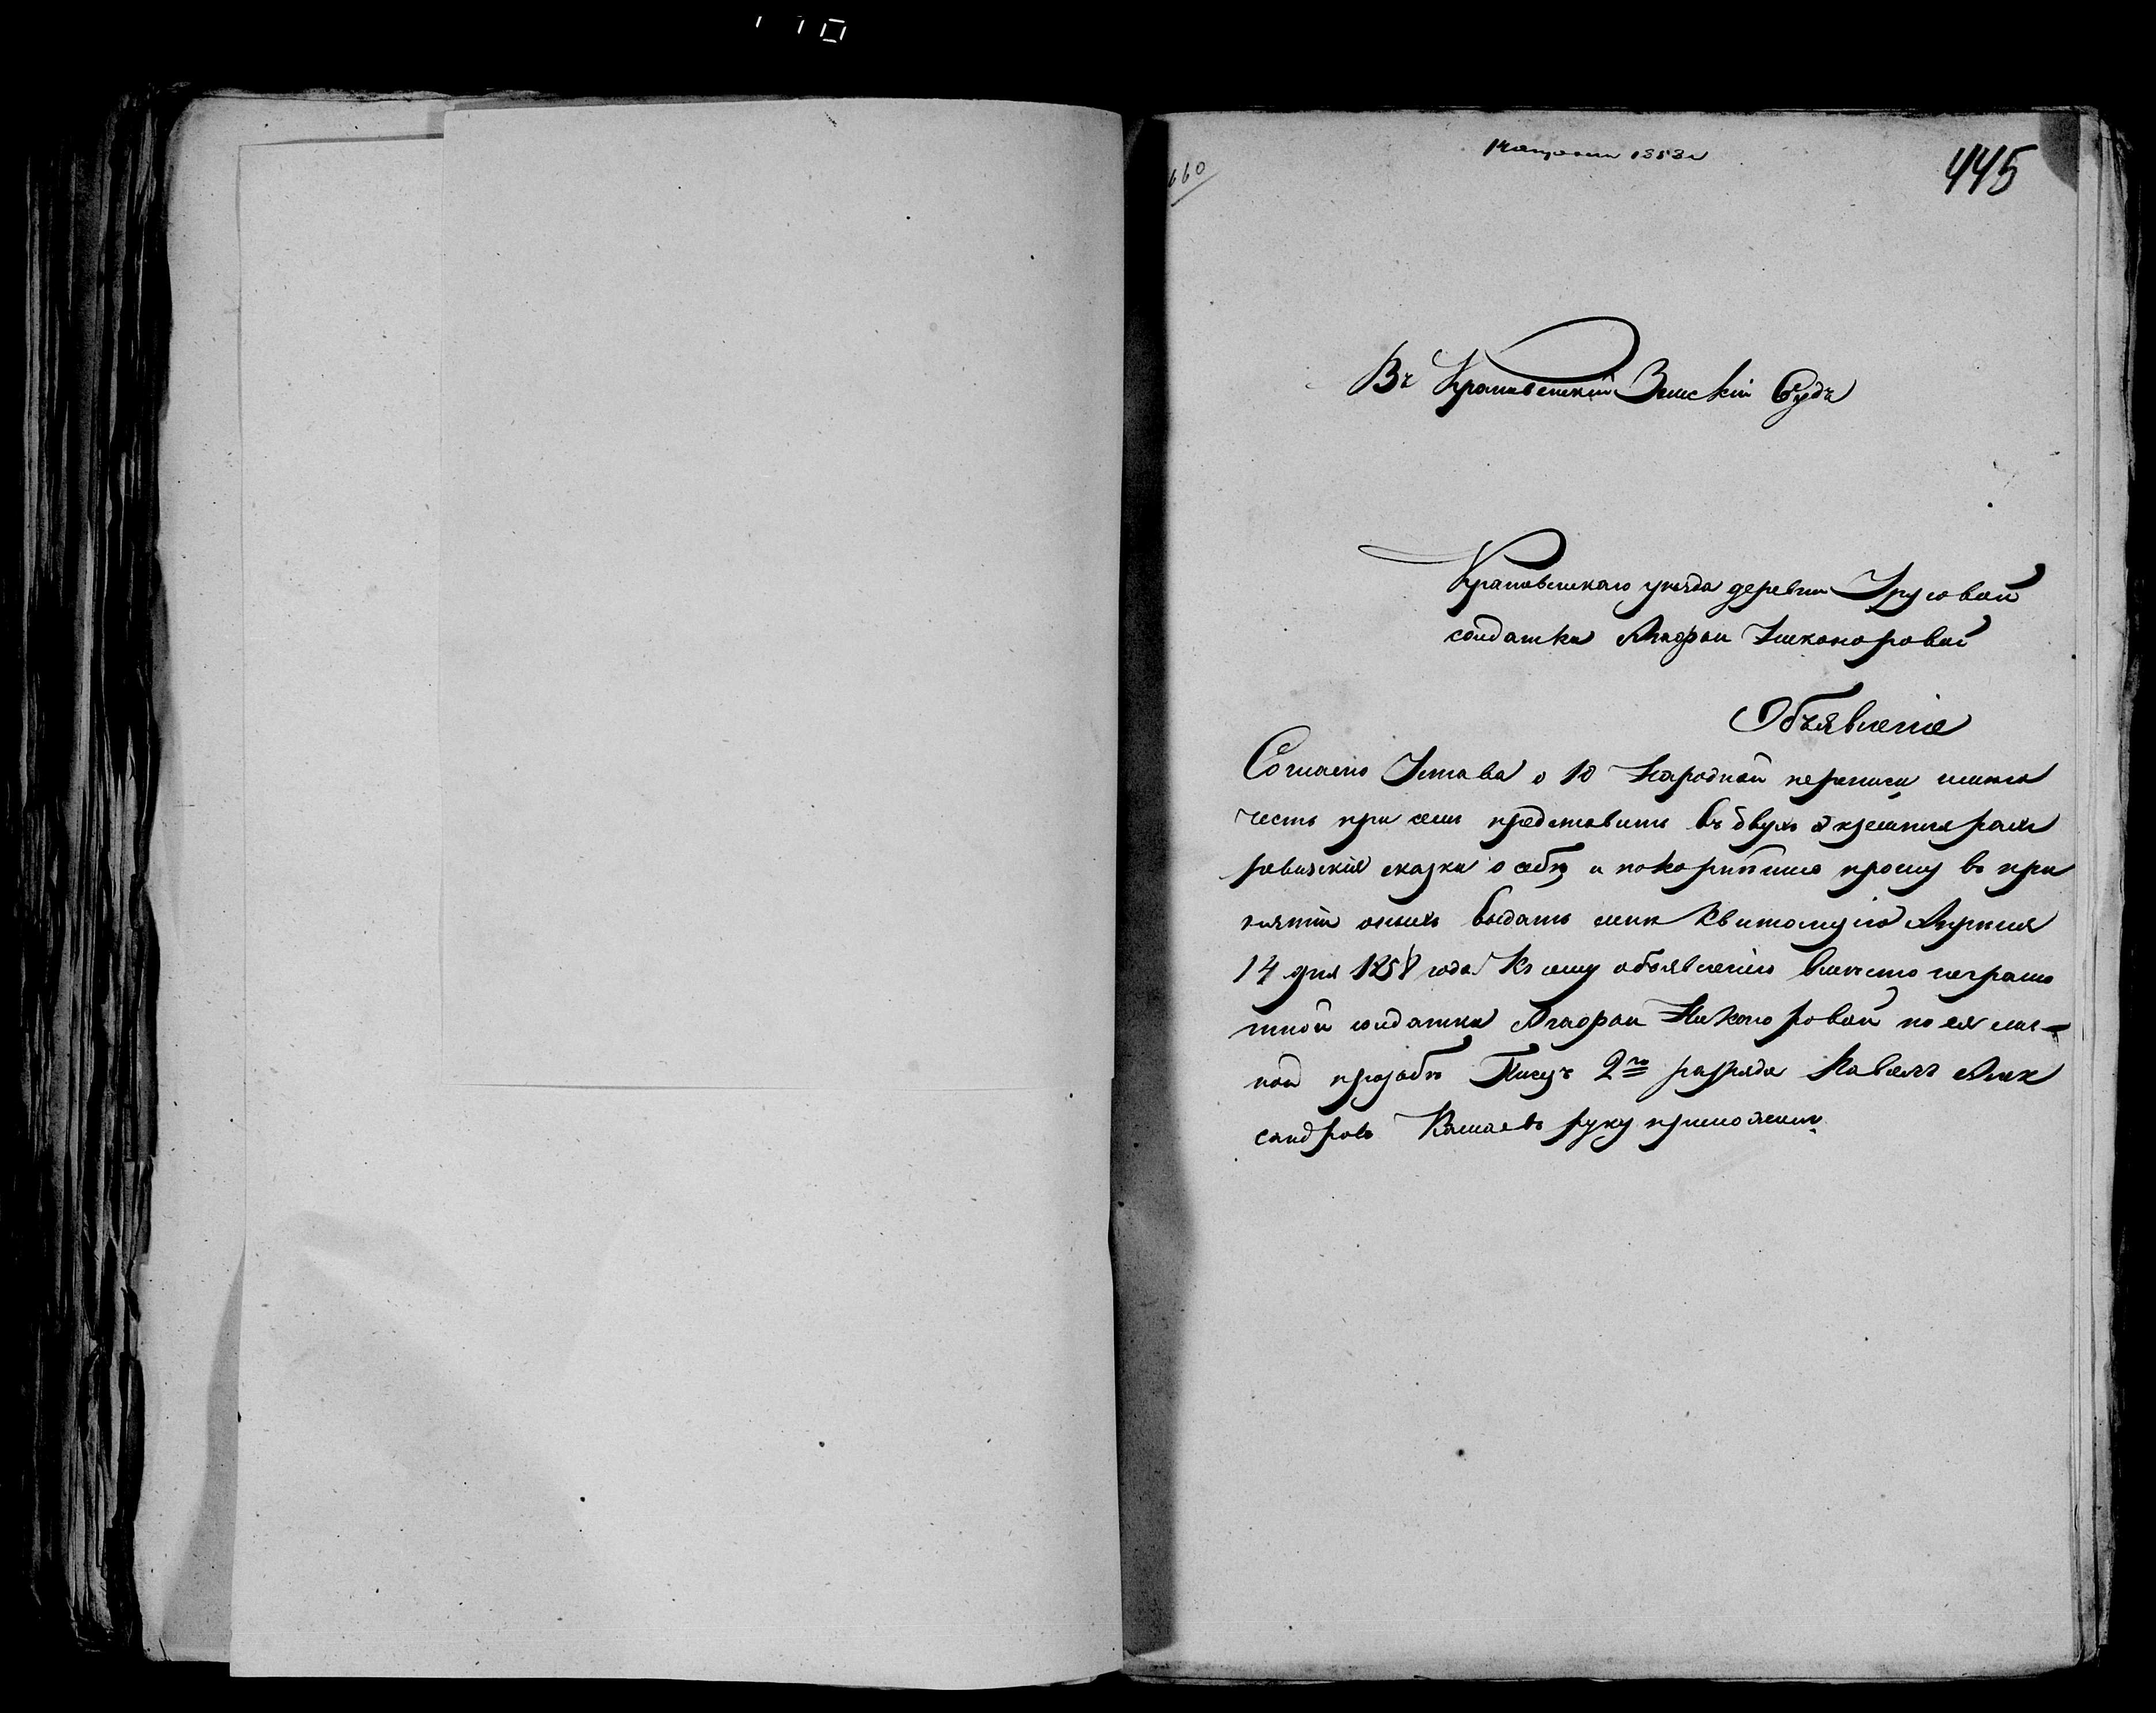 660
445
Въ Крапивенскій Земскій Судъ
Крапивенскаго уезда деревни Трусовой
солдатки Агафьи Никоноровой
Объявленіе
Согласно Устава о 10 Народной переписи имею
честь при семъ представить въ двухъ экземплярахъ
ревизскія сказки о себѣ и покорнѣйше прошу въ при
нятіи оныхъ выдать мнѣ Квитанцію Апреля
14 дня 1858 года Къ сему объявленію вместо неграмо
тной солдатки Агафьи Никоноровой по ея лич-
ной прозьбѣ Писецъ 2го разряда Павелъ Алек
сандровъ руку приложилъ